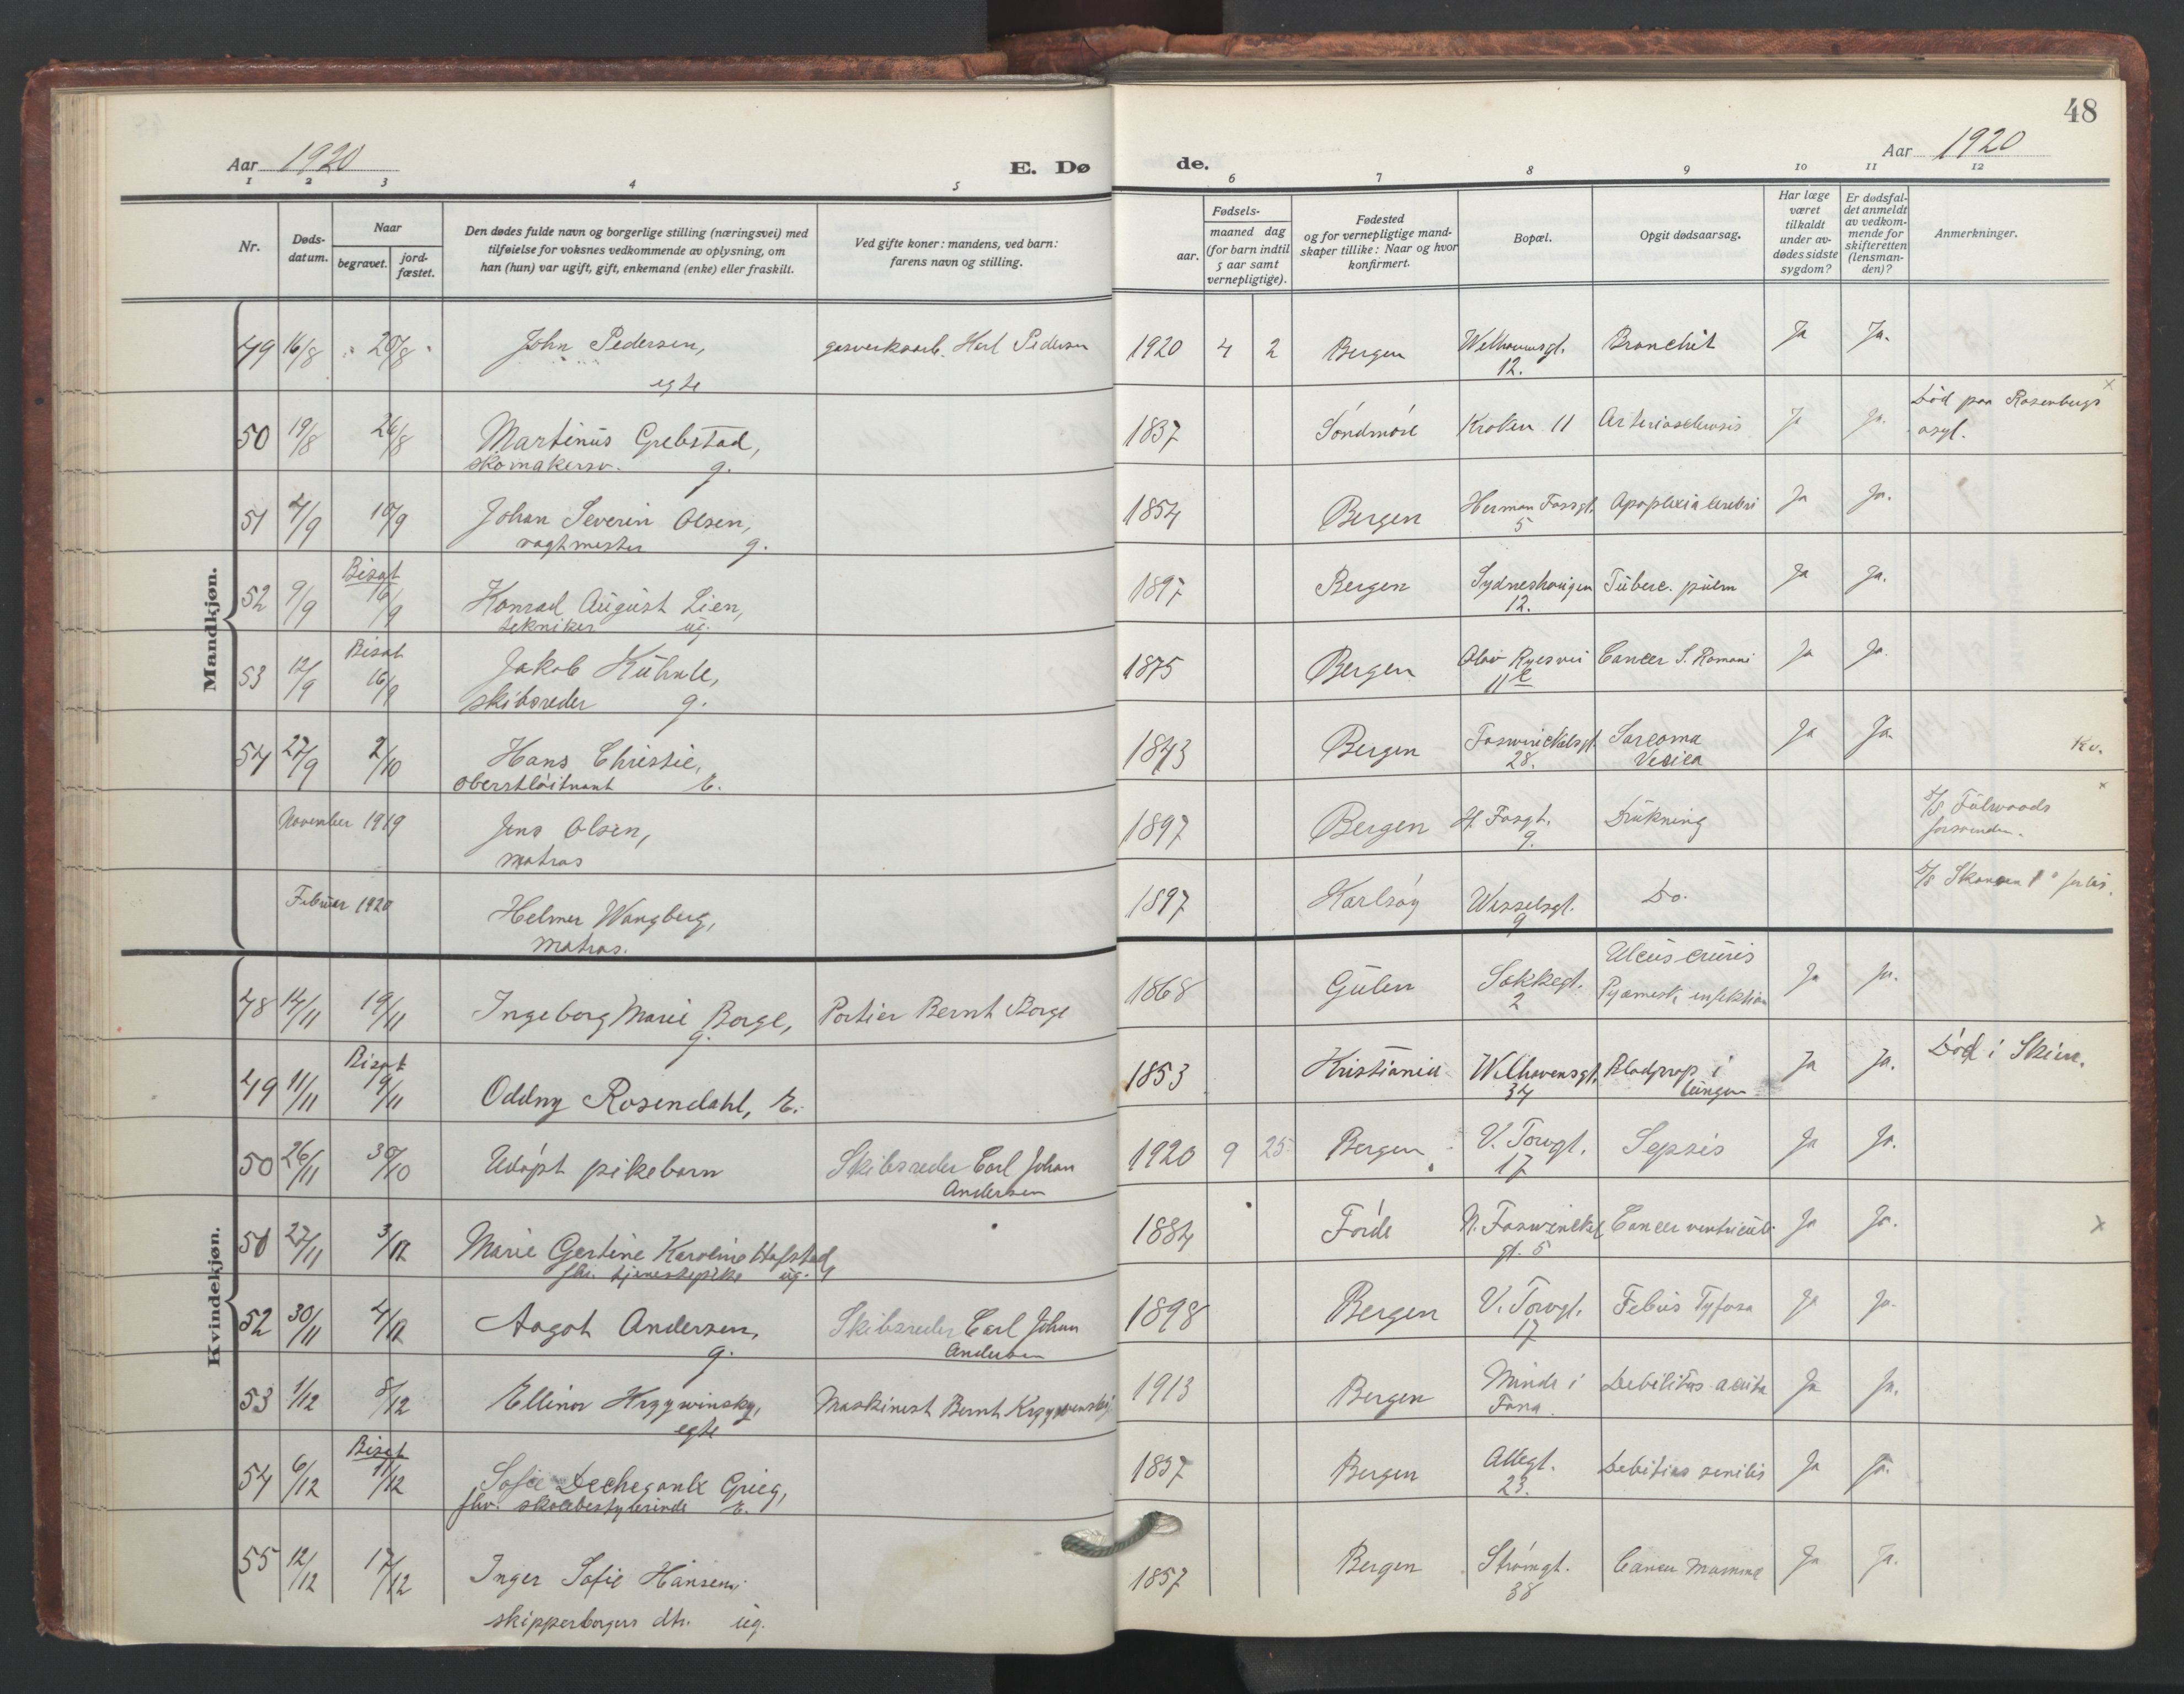 48
Aar 1920
E. Dø
de.
Aar 1920
1 2 3 4 5
6 7 8 9 10 11 12
Nr.
Døds-
datum.
Naar
begravet.
jord-
fæstet.
Den dødes fulde navn og borgerlige stilling (næringsvei) med
tilføielse for voksnes vedkommende av oplysning, om
han (hun) var ugift, gift, enkemand (enke) eller fraskilt.
Ved gifte koner: mandens, ved barn:
farens navn og stilling.
Fødsels-
aar.
maaned dag
(for barn indtil
5 aar samt
vernepligtige).
Fødested
og for vernepligtige mand-
skaper tillike: Naar og hvor
konfirmert.
Bopæl.
Opgit dødsaarsag.
Har læge
været
tilkaldt
under av-
dødes sidste
sygdom?
Er dødsfal-
det anmeldt
av vedkom-
mende for
skifteretten
(lensman-
den)?
Anmerkninger.
Mandkjøn.
49 16/8 20/8 John Pedersen, gasverksarb. Karl Pedersen 1920 4 2 Bergen Welhavensgt. Bronchit Ja Ja.
egte 12.
50 19/8 26/8 Martinus Grebstad, 1837 Söndmöre Kroken 11 Arteriosclerosis Ja Ja. Död paa Rosenbergs x
skomakersv. g. asyl.
51 4/9 10/9 Johan Severin Olsen, 1854 Bergen Herman Fossgt. Apoplexia cerebri Ja Ja.
vagtmester g. 5
Bisat
52 9/9 16/9 Konrad August Lien, 1897 Bergen Sydneshaugen Tuberc. pulm Ja Ja.
tekniker ug. 12.
Bisat
53 12/9 16/9 Jakob Kuhnle, 1875 Bergen Olav Ryesvei Cancer S. Romani Ja Ja.
skibsreder g. 11
54 27/9 2/10 Hans Christie, 1843 Bergen Foswinckelsgt. Sarcoma Ja Ja
oberstlöitnant E. 28. Vesica Kv.
November 1919 Jens Olsen, 1897 Bergen H. Fosgt. Drukning Fulwoods x
matros 9. forsvinden.
Februar 1920 Helmer Wangberg, 1897 Karlsöy Wesselsgt. Do. Skansen forlis.
matros. 9
Kvindekjøn.
48 14/11 19/11 Ingeborg Marie Borge, Portier Bernt Borge 1868 Gulen Sokkegt. Ulcus cruris Ja Ja.
g. 2 Pyæmisk infektion
Bisat
49 11/11 19/11 Oddny Rosendahl, E. 1853 Kristiania Welhavensgt. Blodprop i Ja Ja. Död i Skien.
34 lungen
50 26/11 30/10 Udöpt pikebarn Skibsreder Carl Johan 1920 9 25 Bergen V. Torvgt. Sepsis Ja Ja.
Andersen 17
51 27/11 3/12 Marie Gertine Karoline Hafstad, 1884 Förde N. Foswinckel Cancer ventriculi Ja Ja. x
fhv. tjenestepike ug. gt. 5
52 30/11 4/12 Aagot Andersen, Skibsreder Carl Johan 1898 Bergen V. Torvgt. Febris Tyfosa Ja Ja.
g. Andersen 17
53 1/12 8/12 Ellinor Krzywinsky, Maskinist Bernt Krzywinsky 1913 Bergen Minde i Debilitas acuta Ja Ja.
egte Fana.
Bisat
54 6/12 11/12 Sofie Grieg, 1837 Bergen Allegt. Debilitas senilis Ja Ja.
fhv. skolebestyrerinde E. 23.
55 12/12 17/12 Inger Sofie Hansen, 1857 Bergen Strömgt. Cancer Mammæ Ja Ja.
skipperborgers dtr. ug. 38